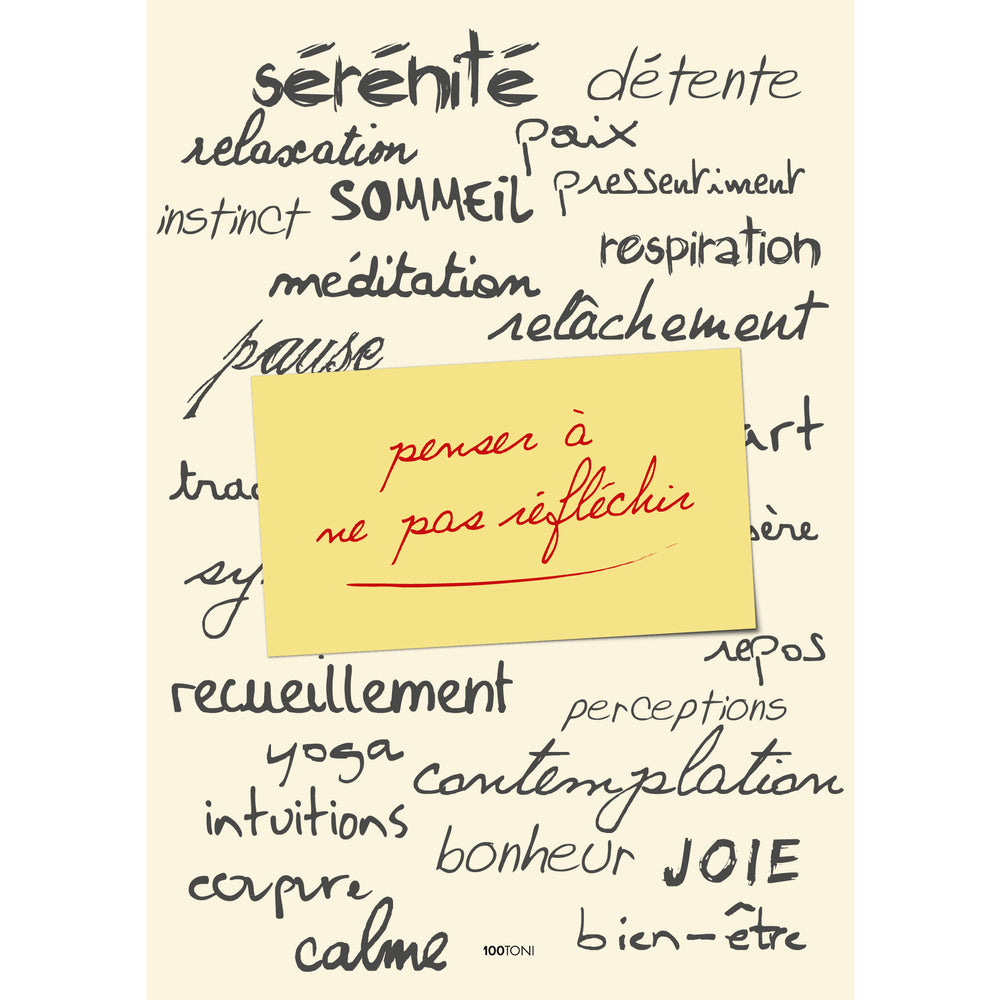 sérénité détente
relaxation paix
instinct SOMMEiL pressentiment
respiration
méditation
relâchement
pause
penser à
ne pas réfléchir
repos
recueillement
perceptions
yoga
contemplation
intuitions
bonheur JOIE
coupure
calme bien-être
100TONI